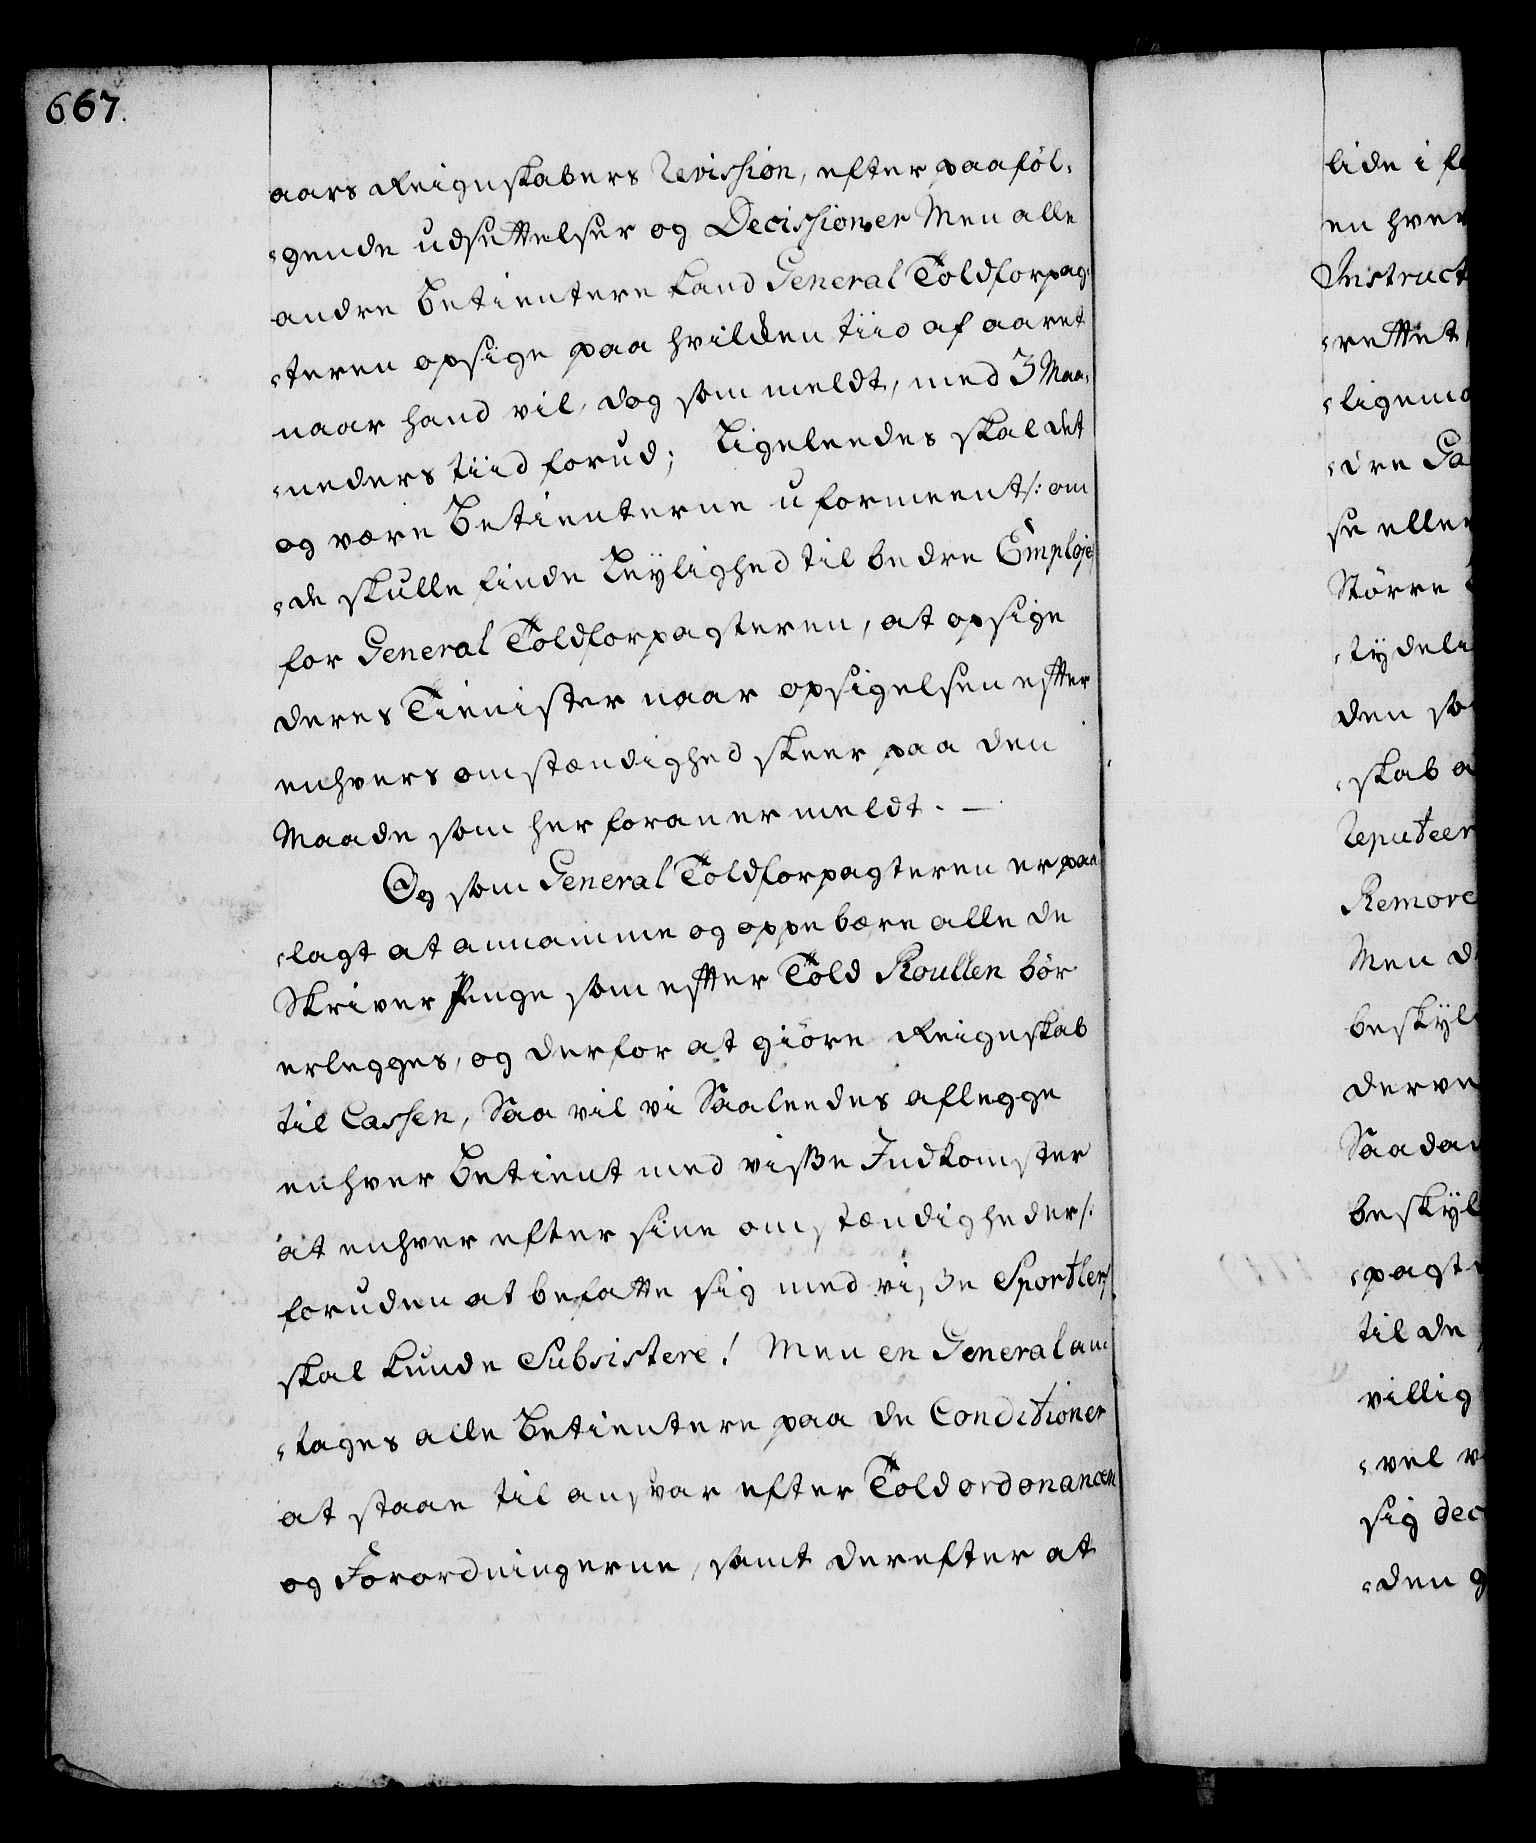 667.
aars Reignskabers Revission, efter paaföl-
-gende udsettelser og Decissioner Men alle
andre Betientere kand General Toldforpag-
-teren opsige paa hvilcken tiid af aaret
naar hand vil, dog som meldt, med 3 Maa-
-neders tiid forud; Ligeleedes skal det
og være Betienterne uformeent /: om
-de skulle finde Leylighed til bedre Emploje
for General Toldforpagteren, at opsige
deres Tienister naar opsigelsen effter
enhvers omstændighed skeer paa den
Maade som her foran er meldt. —
Og som General Toldforpagteren er paa-
-lagt at annamme og oppebære alle de
Skriver Penge som effter Told Roullen bör
erlegges, og derfor at giöre Reigneskab
til Cassen, Saa vil vi Saaleedes aflegge
enhver Betient med visse Indkomster
at enhver efter sine omstændigheder /:
foruden at befatte sig med visse Sportler /:
skal kunde Subsistere! Men en General an-
-tages alle Betientere paa de Conditioner
at staae til ansvar efter Toldordonancen
og Forordningerne, samt derefter at
lide i
en hver
Instruct
-rettet
-ligema
-dre Ga
se eller
Större
-tydeli
den so
-skab a
Reputeer
Remove
Men d
beskyl
derve
Saadan
beskyl
-pagt
til de
villig
-vel v
sig dec
-den g